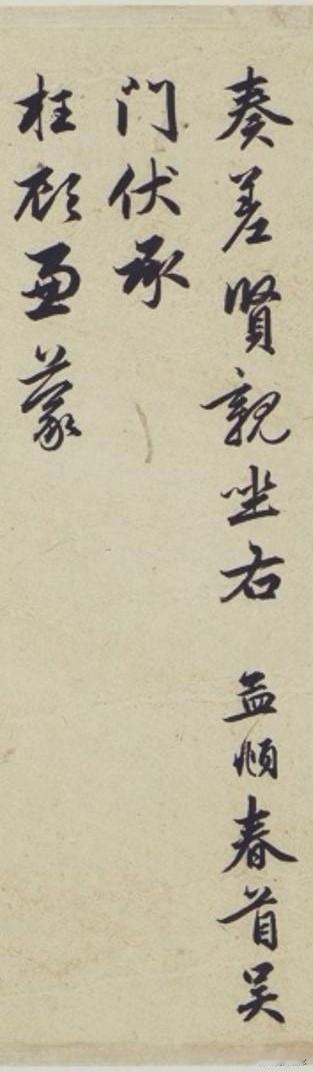 奏差賢親坐右 孟頫春首吴
門伏承
枉顧重蒙